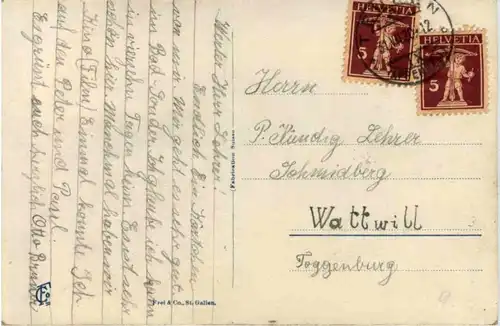 Werter Herr Lehrer!
Endlich. Ein Kärtchen
von mir. Mir geht es sehr gut
in Bad. Sonder. Ich glaube ich kann
in vierzehn Tagen heim. Es ist sehr
schön hier. Manchmal haben wir
Kino (Film) Einmal konnte Ich
auf den Peter und Paul.
Es grüsst euch herzlich Otto
HELVETIA
5
HELVETIA
5
Herrn
P. Kündig Lehrer
Schmidberg
Wattwill
Toggenburg
(Fabrication Suisse)
Frei & Co., St. Gallen.